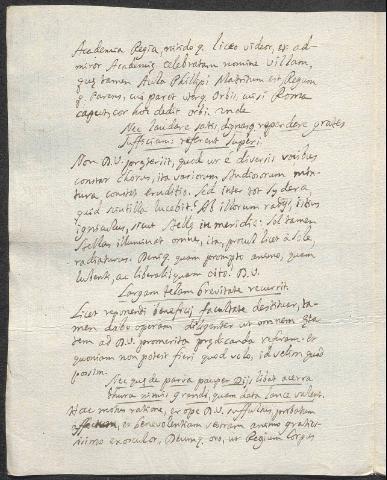 Academia Regia, nitido q. liceo videor, et ad-
miror Academiæ celebratam nomine villam,
quę tamen Aula Phillipi Matritum est, Regum
q. Parens, cui paret uterq. Orbis, uti Roma
caput, cor hoc dedit orbi. unde
Nec laudare satis, dignasq. rependere grates
Sufficiam: referent Superi.
Non D.V. pręteriit, quod ut e diversis vocibus
constat chorus, ita variorum studiorum mix-
tura constet eruditio. Sed inter tot sydera,
quid scintilla lucebit? Ab illorum radijs, istos
igniculus, sicut Stellę in meridie: Sol tamen
stellas illuminet omnes, ita, procul licet à Sole,
radiatur. Denq. quam prompto animo, quam
lubenti, ac liberali, quam cito! D.V.
Largam telam brevitate recurrit.
Licet reponendi beneficij facultate destituar, ta-
men dabo operam diligenter ut omnem ęta-
tem ad D.V. promerita prędicanda referam. et
quoniam non potest fieri quod volo, id velim quod
possim.
Nec quę de parva pauper Dijs libat acerra
thura minus grandi, quam data lance valent.
Hac motus ratione, et ope D.V. suffultus, probatum
affectum, et benevolentiam vestram animo gratis-
simo exosculor, Deumq. oro, ut Regium Corpus